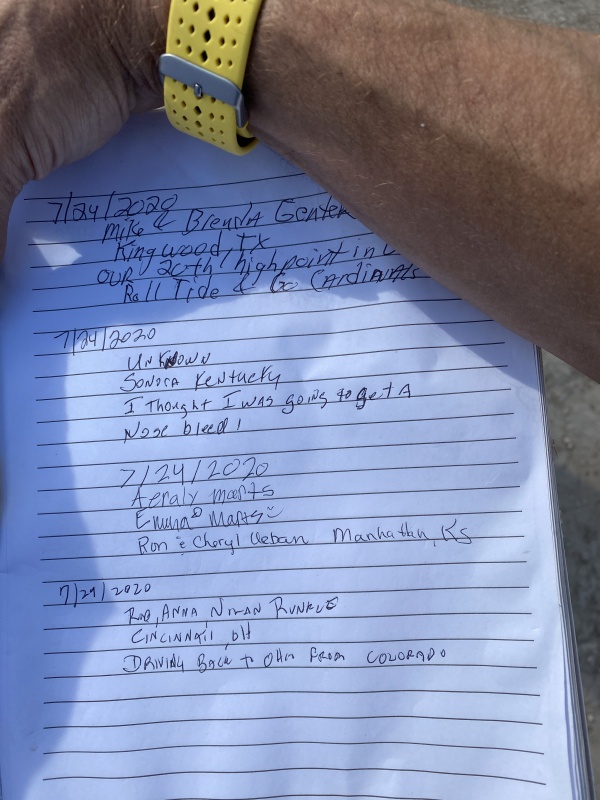 7/24/2020
Mike & Brenda
Kingwood, TX
OUR 20th highpoint in
Roll Tide & Go Cardinals
7/24/2020
Unknown
Sonora Kentucky
I Thought I was going to get A
Nose bleed!
7/24/2020
Marts
Emma Marts
Ron & Cheryl Urban Manhattan, Ks
7/29/2020
Rob, Anna Nolan Runkle
Cincinnati, OH
Driving Back to Ohio From COLORADO